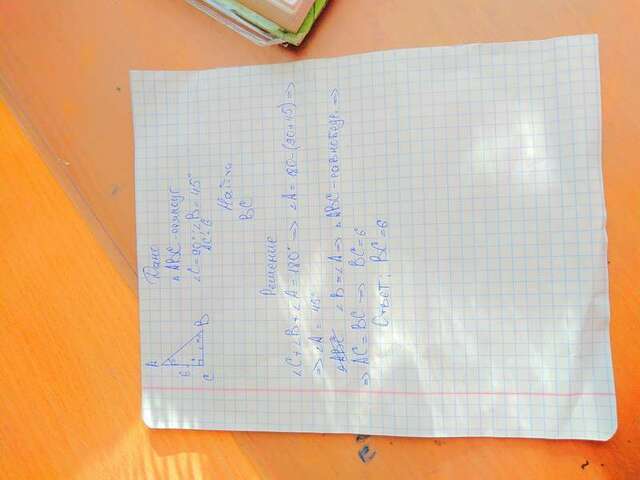 Дано
△ABC - прямоуг
∠C = 90° ∠B = 45°
AC = 6
Найти
BC
A
6
C
B
Решение
∠C + ∠B + ∠A = 180° => ∠A = 180 - (90 + 45) =>
=> ∠A = 45°
△ABC ∠B = ∠A => △ABC - равнобедр. =>
=> AC = BC => BC = 6
Ответ: BC = 6